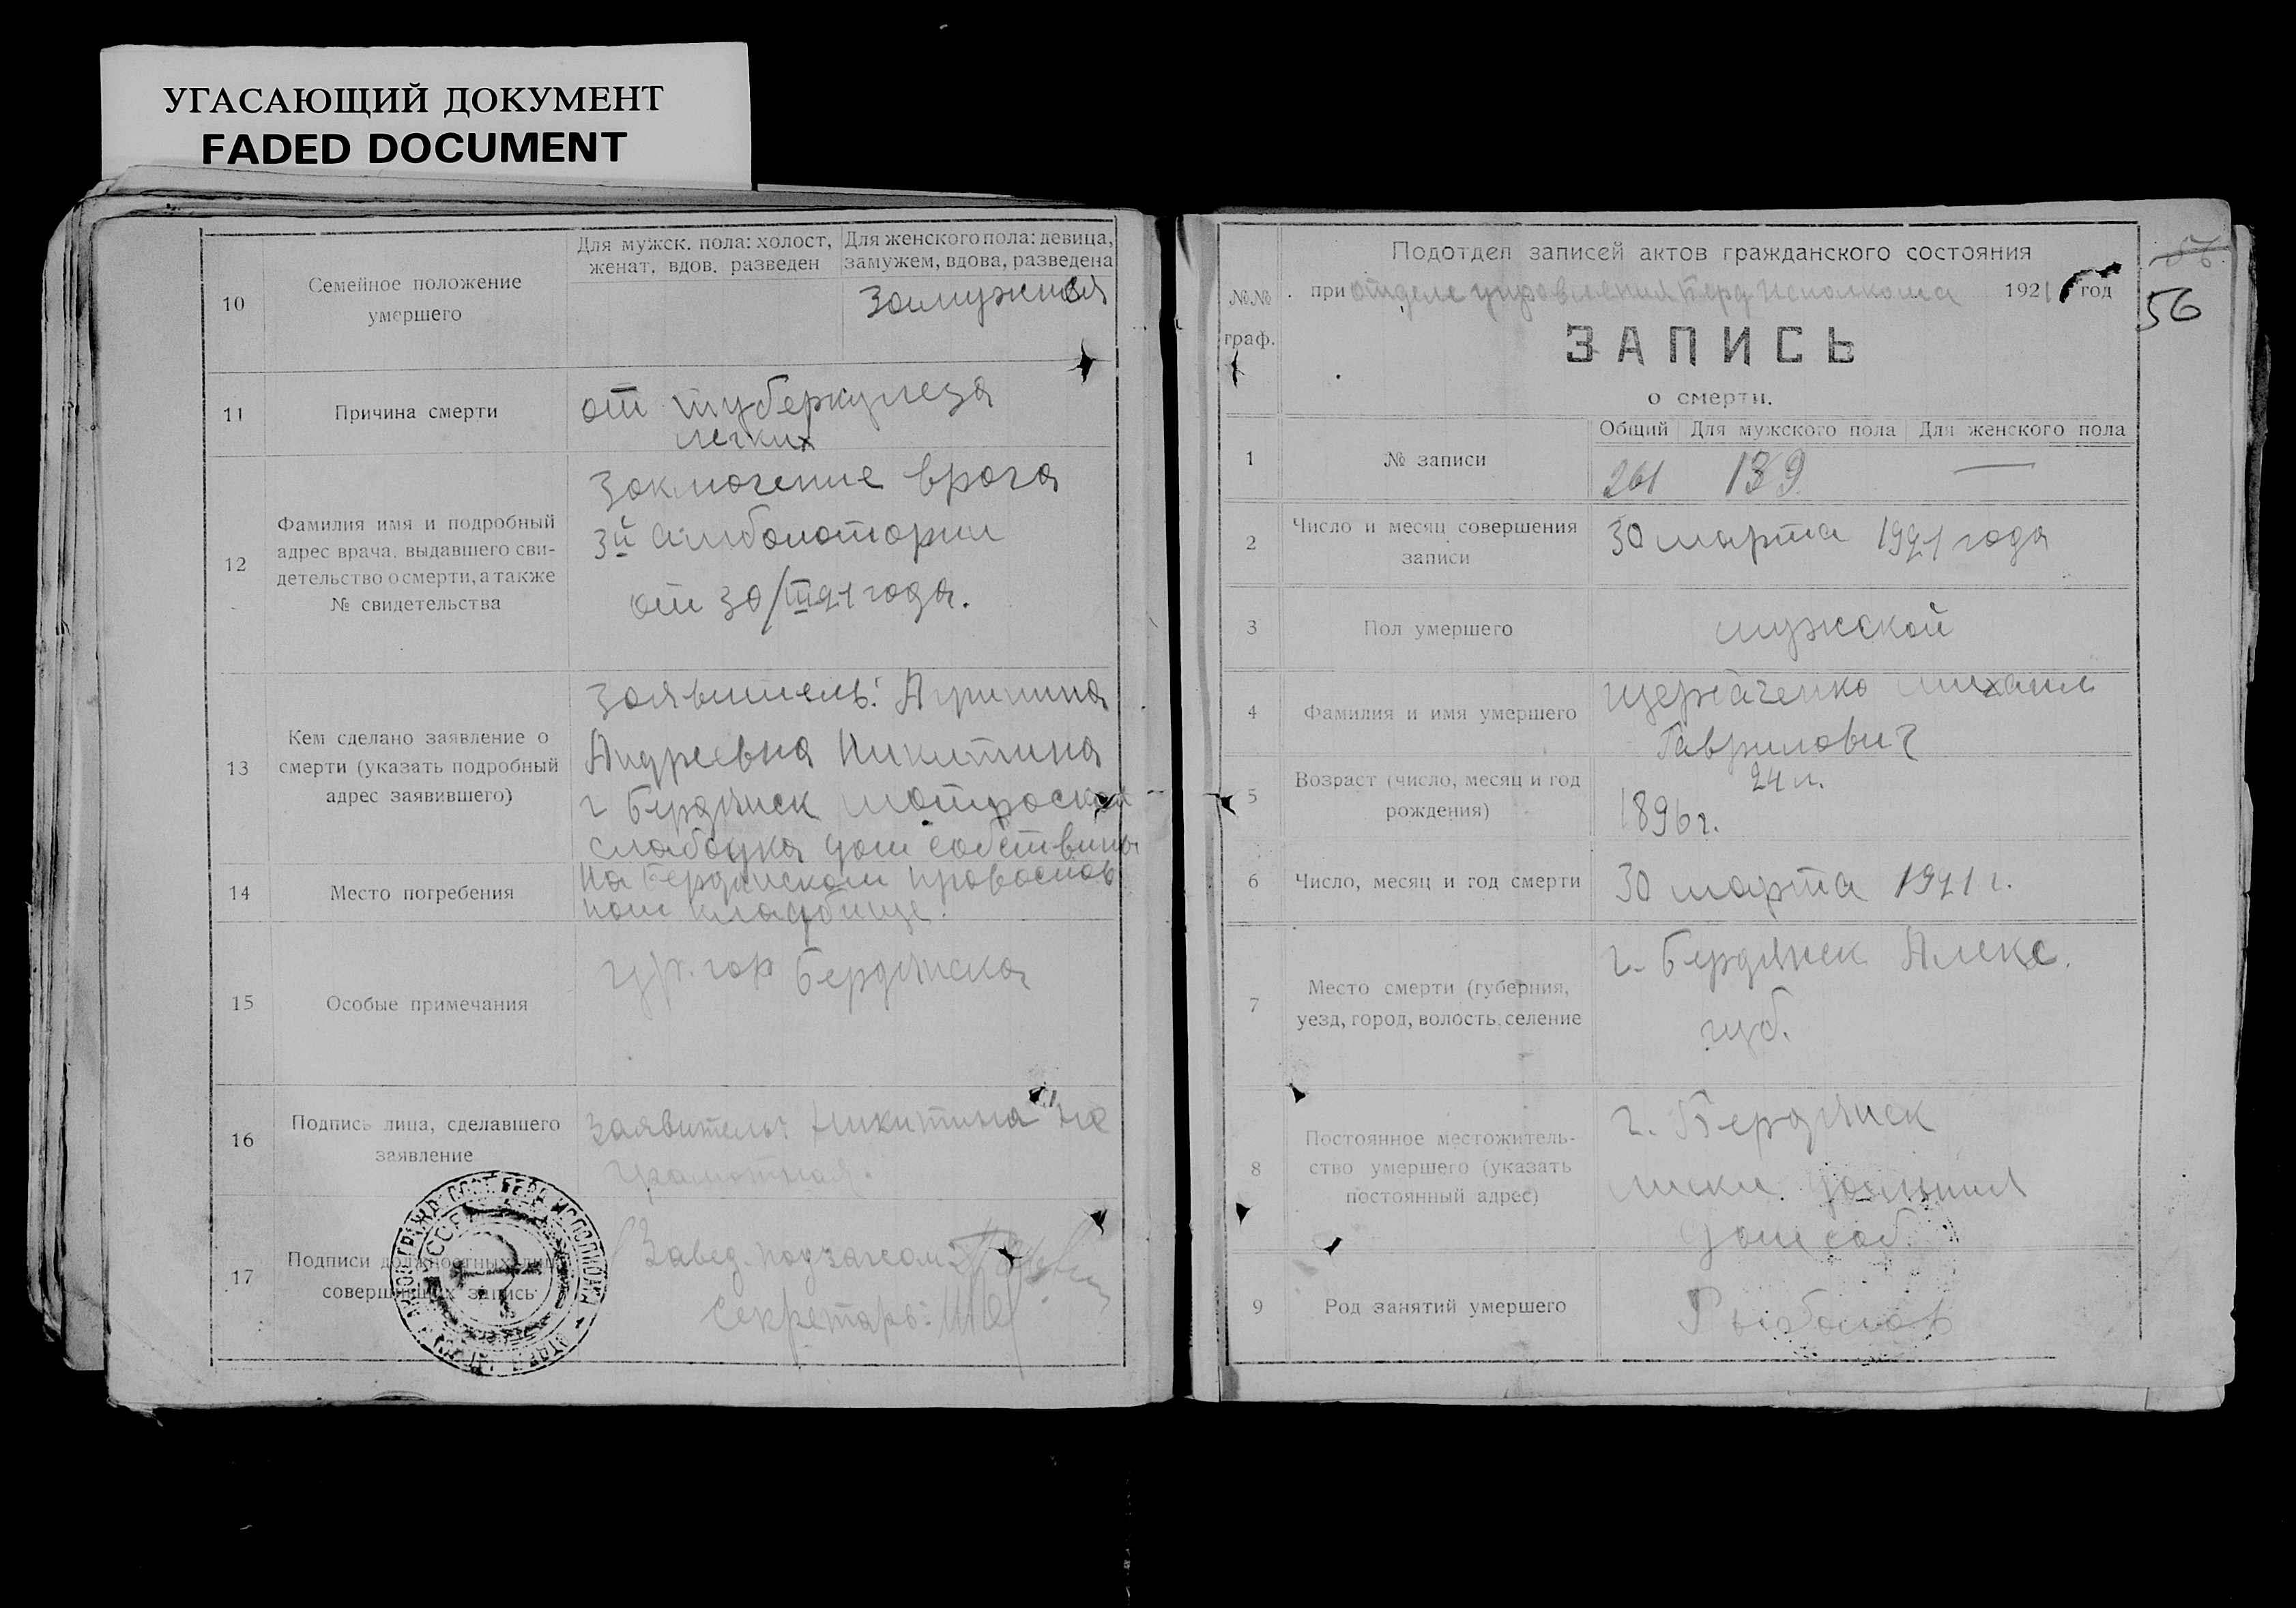 УГАСАЮЩИЙ ДОКУМЕНТ
FADED DOCUMENT
10
Семейное положение
умершего
Для мужск. пола: холост,
женат, вдов, разведен
Для женского пола: девица,
замужем, вдова, разведена
Замужняя
11
Причина смерти
от туберкулеза
легких
12
Фамилия имя и подробный
адрес врача, выдавшего сви-
детельство о смерти, а также
№ свидетельства
Заключение врача
3й Амболотории
от 30/III 21 года.
13
Кем сделано заявление о
смерти (указать подробный
адрес заявившего)
Заявитель:
Андреевна Никитина
г Бердянск матроская
слабодка дом собствены
14
Место погребения
На Бердянском православ
ном кладбище.
15
Особые примечания
гр. гор Бердянска
16
Подпись лица, сделавшего
заявление
Заявитель: Никитина не
грамотная.
17
Подписи должностных лиц
совершивших запись
Завед. подзагсом:
Секретарь:
№№
граф.
Подотдел записей актов гражданского состояния
при отделе управления Берд Исполкома 1921 год
56
ЗАПИСЬ
о смерти.
1
№ записи
Общий Для мужского пола Для женского пола
261 139 —
2
Число и месяц совершения
записи
30 марта 1921 года
3
Пол умершего
мужской
4
Фамилия и имя умершего
Михаил
Гаврилович
5
Возраст (число, месяц и год
рождения)
24 л.
1896 г.
6
Число, месяц и год смерти
30 марта 1921 г.
7
Место смерти (губерния,
уезд, город, волость, селение
г. Бердянск Алекс.
губ.
8
Постоянное местожитель-
ство умершего (указать
постоянный адрес)
г. Бердянск
лиски.
дом соб.
9
Род занятий умершего
Рыболов